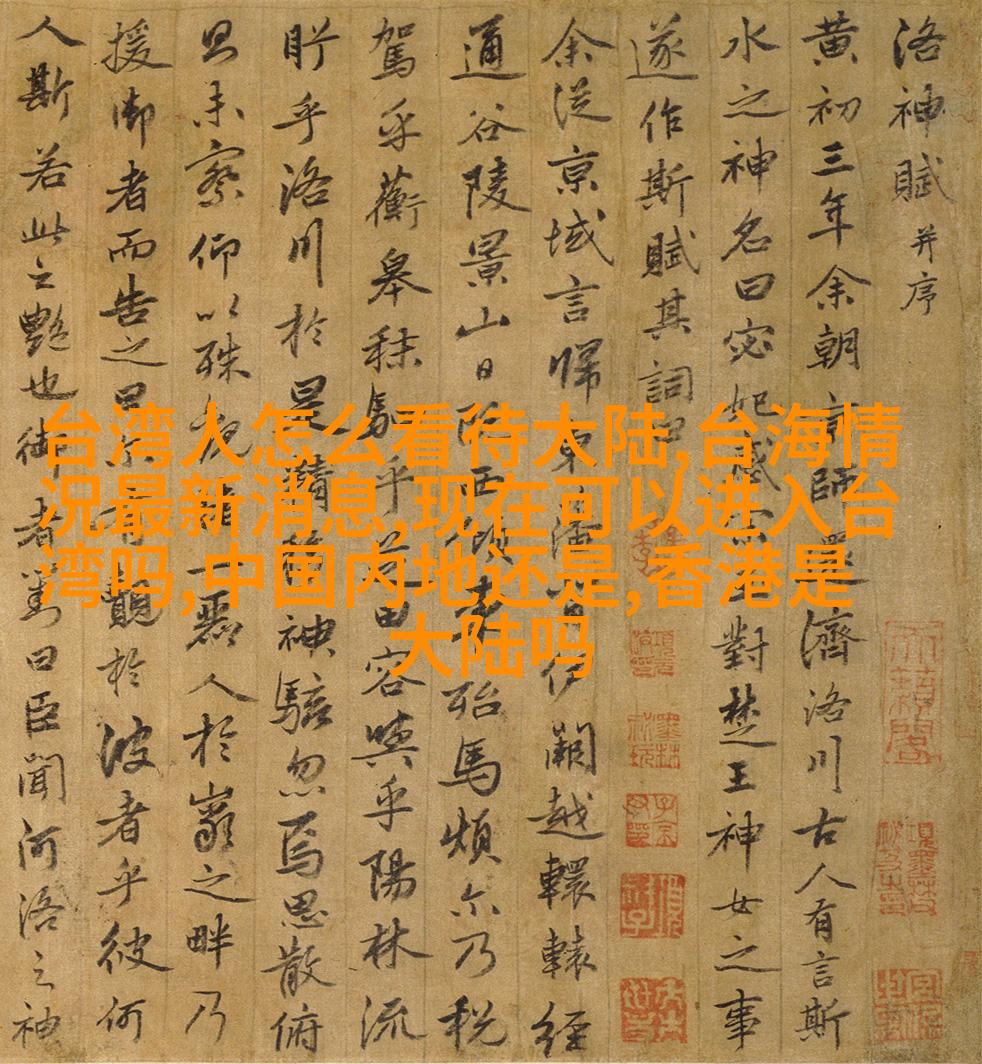 洛神賦 并序
黄初三年余朝京師還濟洛川古人有言斯
水之神名曰宓妃感宋玉對楚王神女之事
遂作斯賦其詞曰
余從京域言歸東藩背伊闕越轘轅經
通谷陵景山日既西傾車殆馬煩尒乃税
駕乎蘅皋秣駟乎芝田容與乎陽林流
眄乎洛川於是精移神駭忽焉思散俯
則未察仰以殊觀睹一麗人於巖之畔乃
援御者而告之曰尔有覿於彼者乎彼何
人斯若此之艷也御者對曰臣聞河洛之神
台湾人怎么看待大陆,台海情
况最新消息,现在可以进入台
湾吗,中国内地还是,香港是
大陆吗